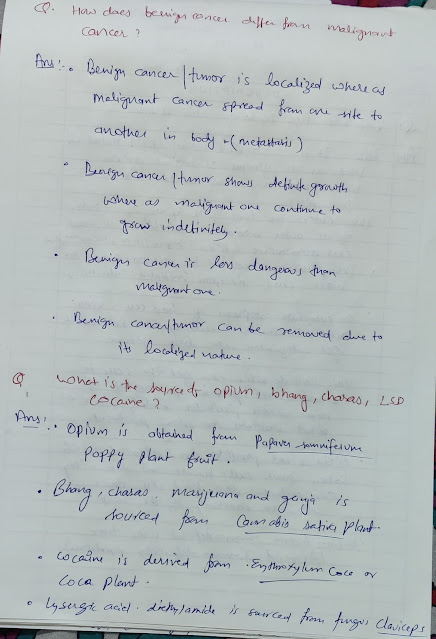 Q. How does benign cancer differ from malignant
cancer ?
Ans :- • Benign cancer/tumor is localized where as
malignant cancer spread from one site to
another in body - (metastasis)
• Benign cancer/tumor shows definite growth
where as malignant one continue to
grow indefinitely.
• Benign cancer is less dangerous than
malignant one.
• Benign cancer/tumor can be removed due to
its localized nature.
Q What is the source of opium, bhang, charas, LSD
cocaine ?
Ans :- • Opium is obtained from Papaver somniferum
poppy plant fruit.
• Bhang, charas. marijuana and ganja is
sourced from Cannabis sativa plant.
• Cocaine is derived from Erythroxylum coca or
coca plant.
• Lysergic acid diethylamide is sourced from fungus Claviceps